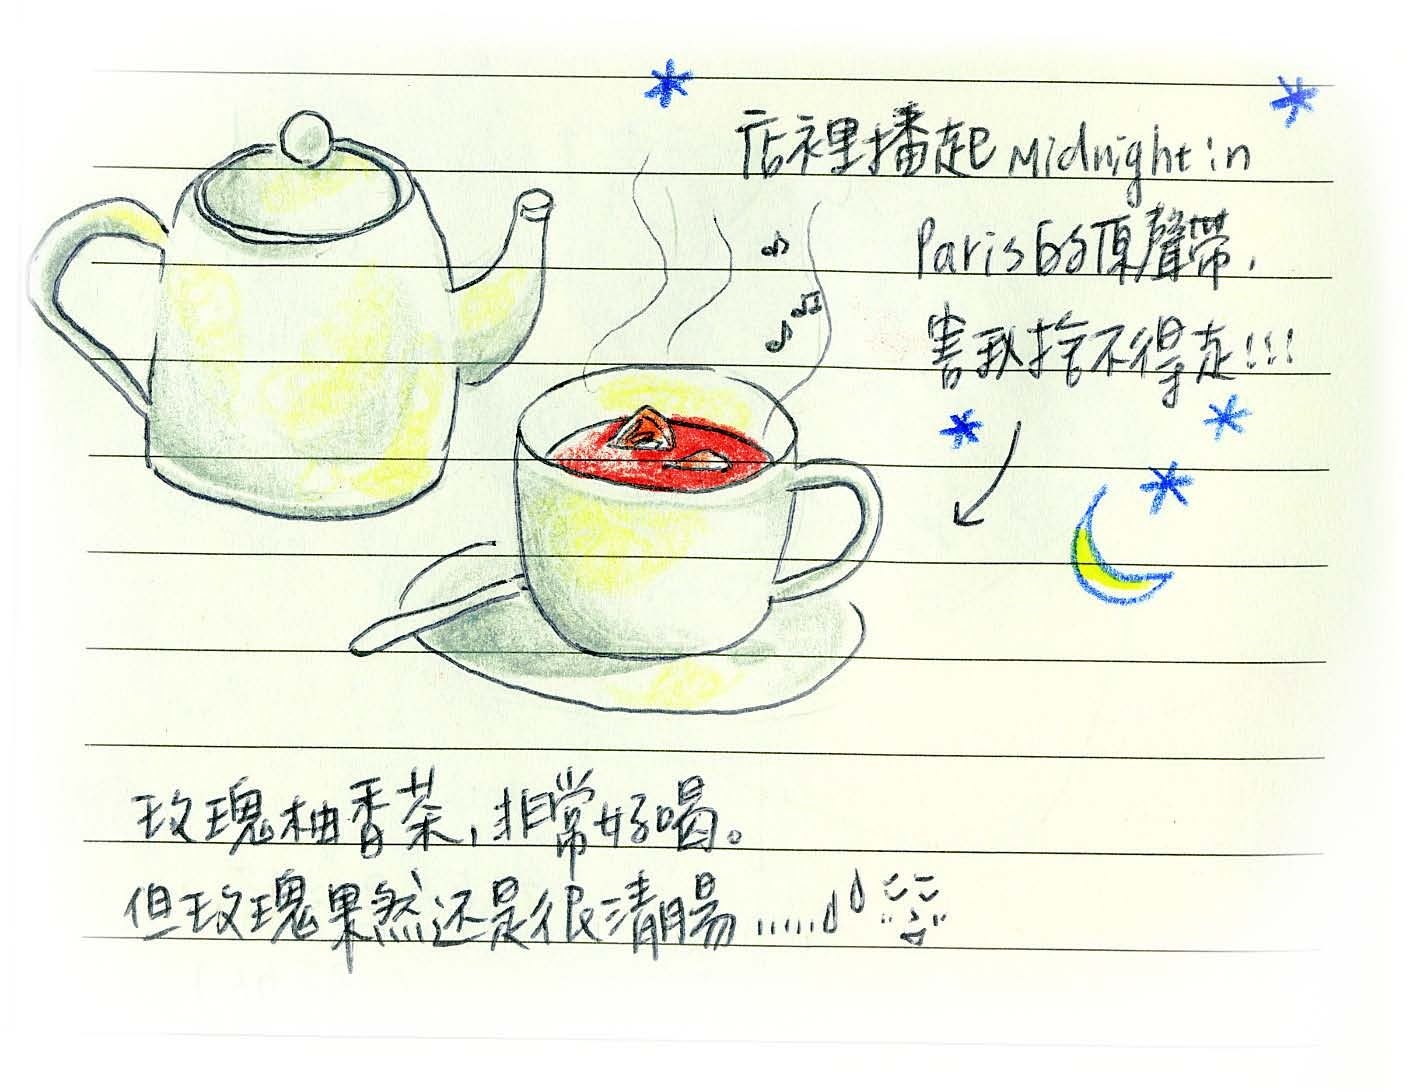 店裡播起 Midnight in
Paris的原聲帶,
害我捨不得走!!!
玫瑰柚香茶,非常好喝。
但玫瑰果然还是很清腸......